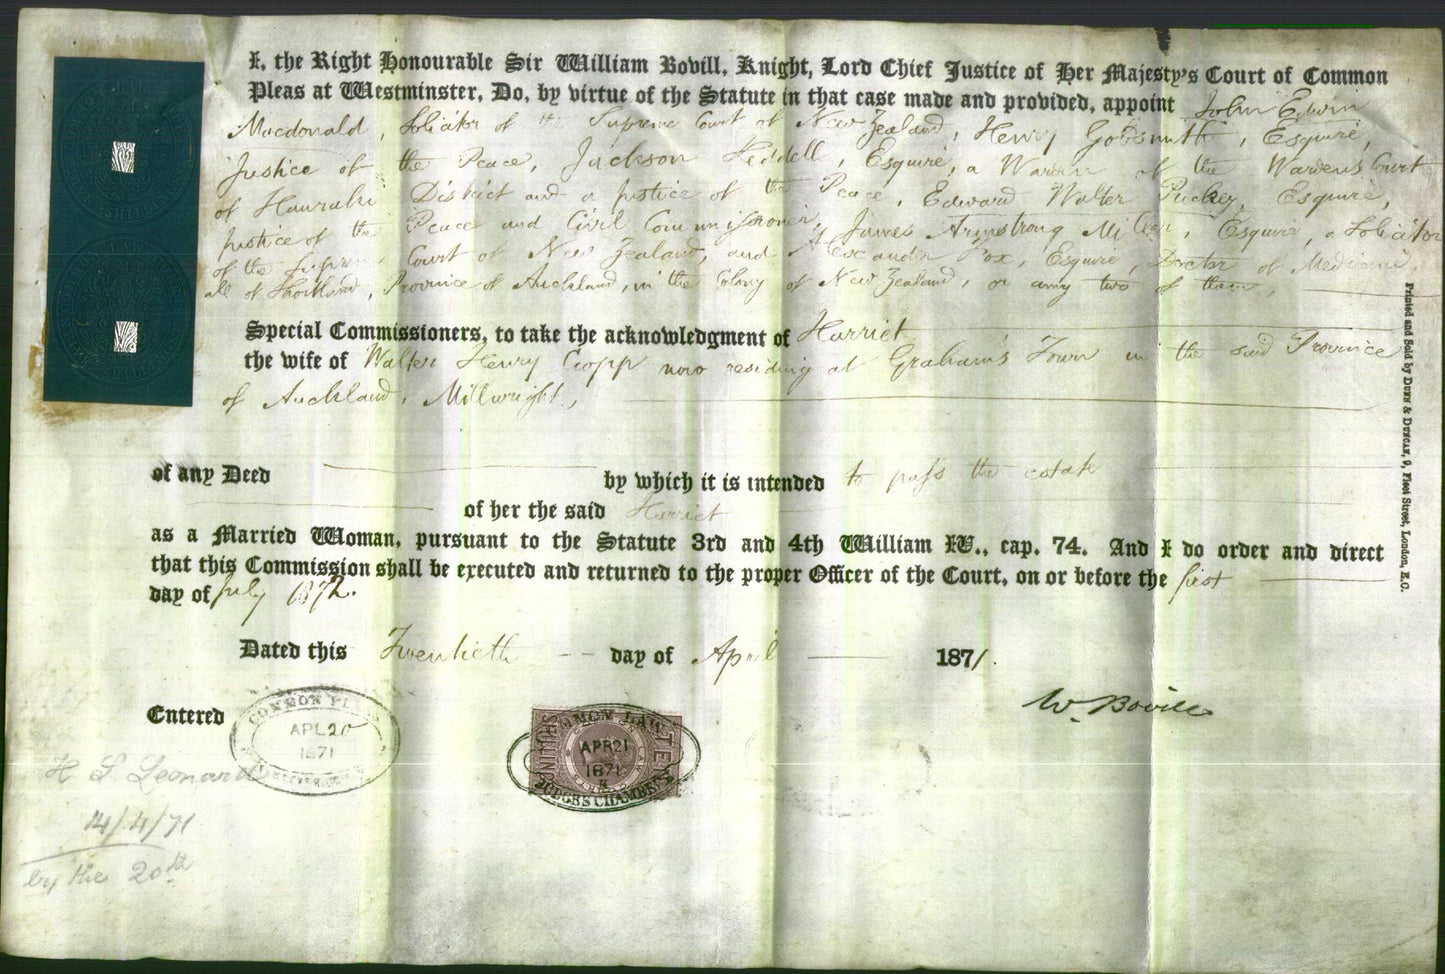 I, the Right Honourable Sir William Bovill, Knight, Lord Chief Justice of Her Majesty's Court of Common
Pleas at Westminster, Do, by virtue of the Statute in that case made and provided, appoint John Edwin
Macdonald, Solicitor of the Supreme Court of New Zealand, Henry Goldsmith, Esquire,
Justice of the Peace, Jackson Keddell, Esquire, a Warden of the Wardens Court
of Hauraki District and a Justice of the Peace, Edward Walter Puckey, Esquire,
Justice of the Peace and Civil Commissioner, James Armstrong Miller, Esquire, a Solicitor
of the Supreme Court of New Zealand, and Alexander Fox, Esquire, Doctor of Medicine,
all of Shortland, Province of Auckland, in the Colony of New Zealand, or any two of them,
Special Commissioners, to take the acknowledgment of Harriet
the wife of Walter Henry Cropp now residing at Graham's Town in the said Province
of Auckland, Millwright,
of any Deed by which it is intended to pass the estate
of her the said Harriet
as a Married Woman, pursuant to the Statute 3rd and 4th William IV., cap. 74. And I do order and direct
that this Commission shall be executed and returned to the proper Officer of the Court, on or before the first
day of July 1872.
Dated this Twentieth day of April 1871.
W. Bovill
Entered
COMMON PLEAS
APL 20
1871
COMMON LAW
APR 21
1871
JUDGES CHAMBERS
TEN
SHILLINGS
H S Leonard
14/4/71
by the 20th
Printed and Sold by Dunn & Duncan, 9, Fleet Street, London, E.C.